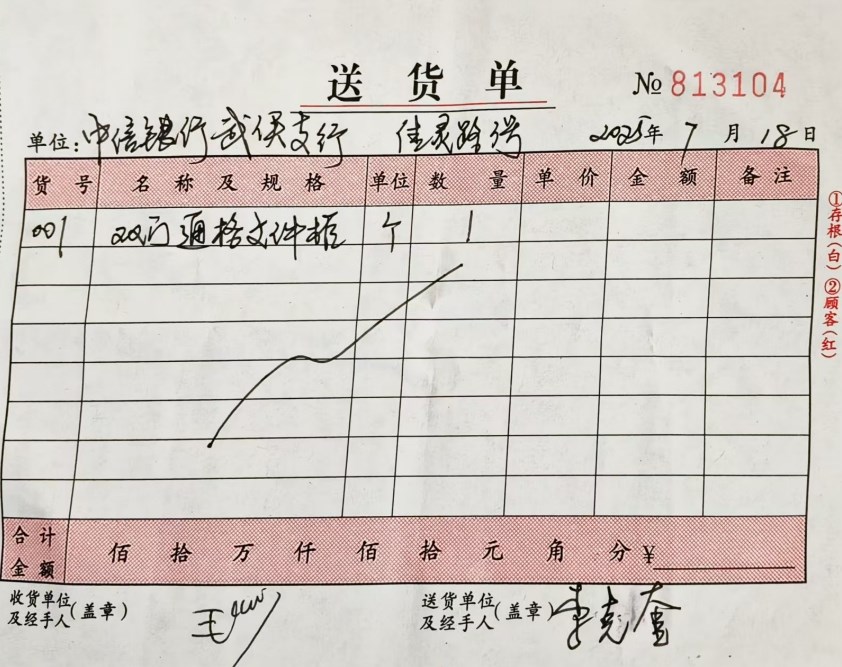 送货单 № 813104
单位：中信银行武侯支行 佳灵路 2025年7月18日
货号 名称及规格 单位 数量 单价 金额 备注
001 双门通格文件柜 个 1
合计金额 佰拾万仟佰拾元角分￥
收货单位及经手人(盖章) 王
送货单位及经手人(盖章) 李克奎
①存根(白)②顾客(红)